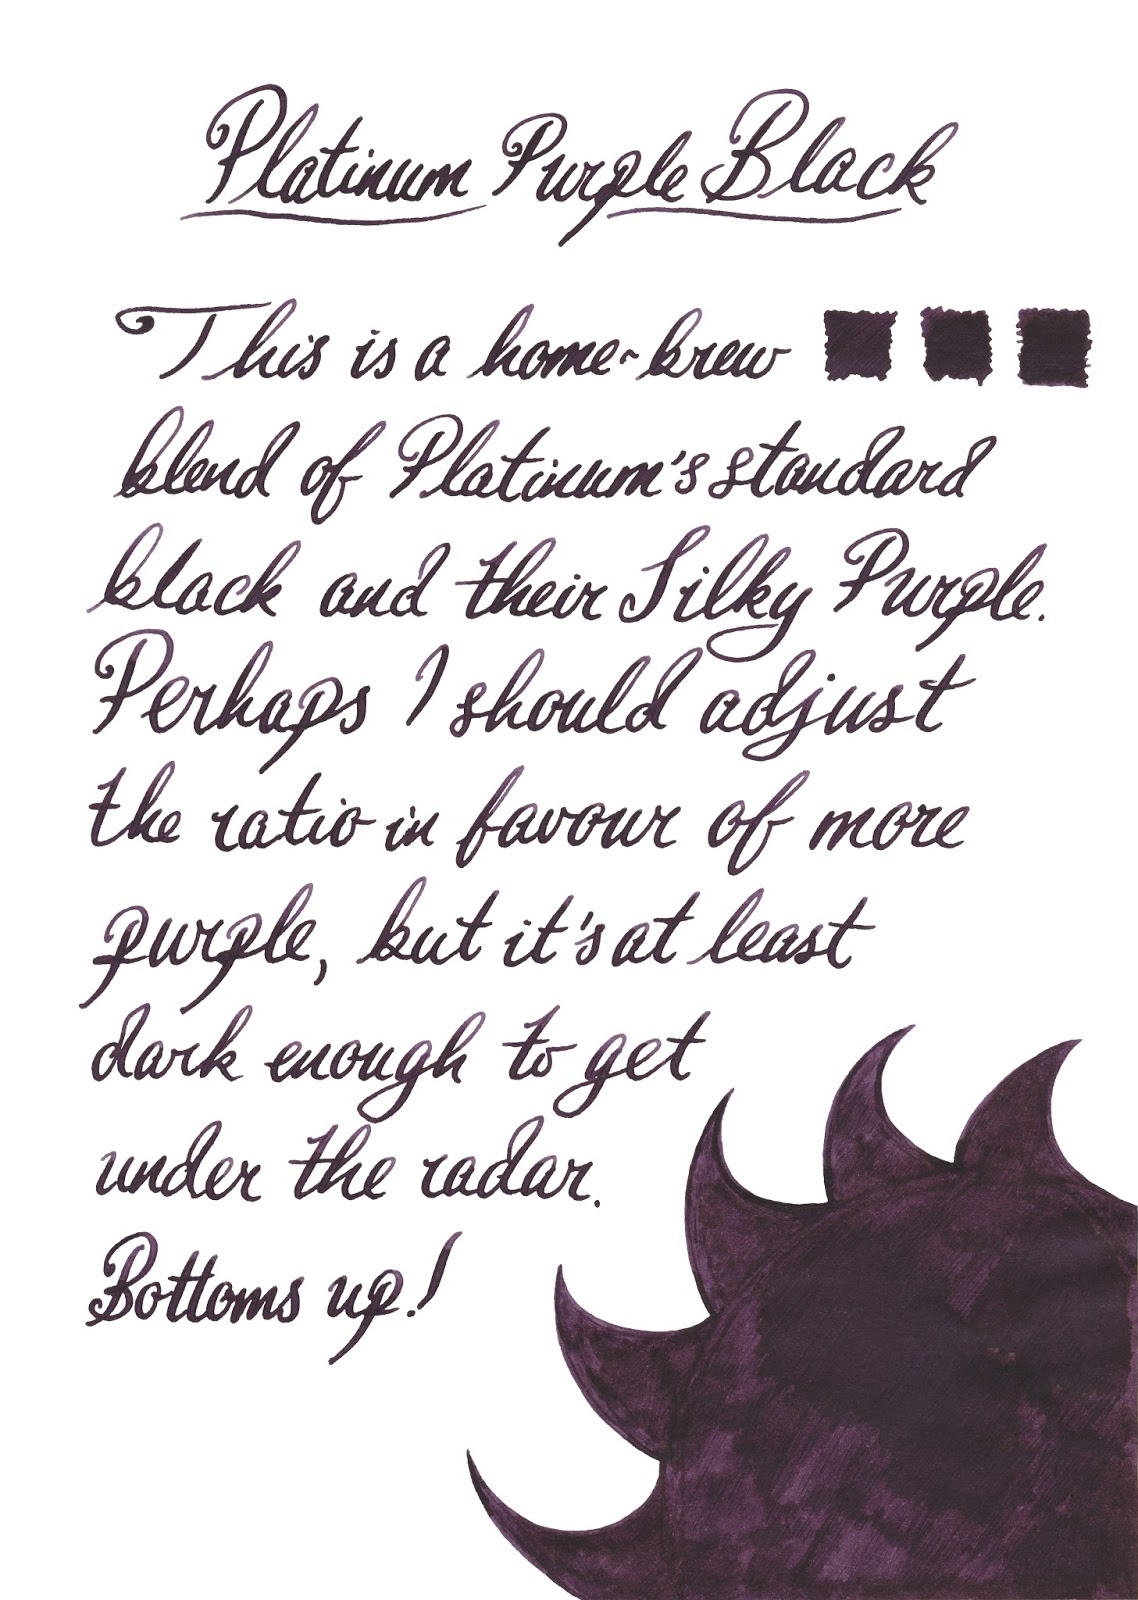 Platinum Purple Black
This is a home-brew
blend of Platinum's standard
black and their Silky Purple.
Perhaps I should adjust
the ratio in favour of more
purple, but it's at least
dark enough to get
under the radar.
Bottoms up!